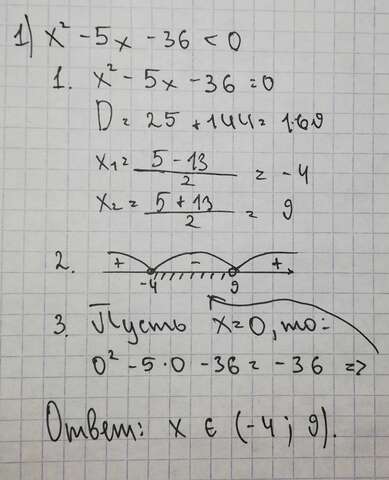 1) x² - 5x - 36 < 0
1. x² - 5x - 36 = 0
D = 25 + 144 = 169
x₁ = (5 - 13)/2 = -4
x₂ = (5 + 13)/2 = 9
2. + - +
-4 9
3. Пусть x=0, то:
0² - 5·0 - 36 = -36 =>
Ответ: x ∈ (-4; 9).